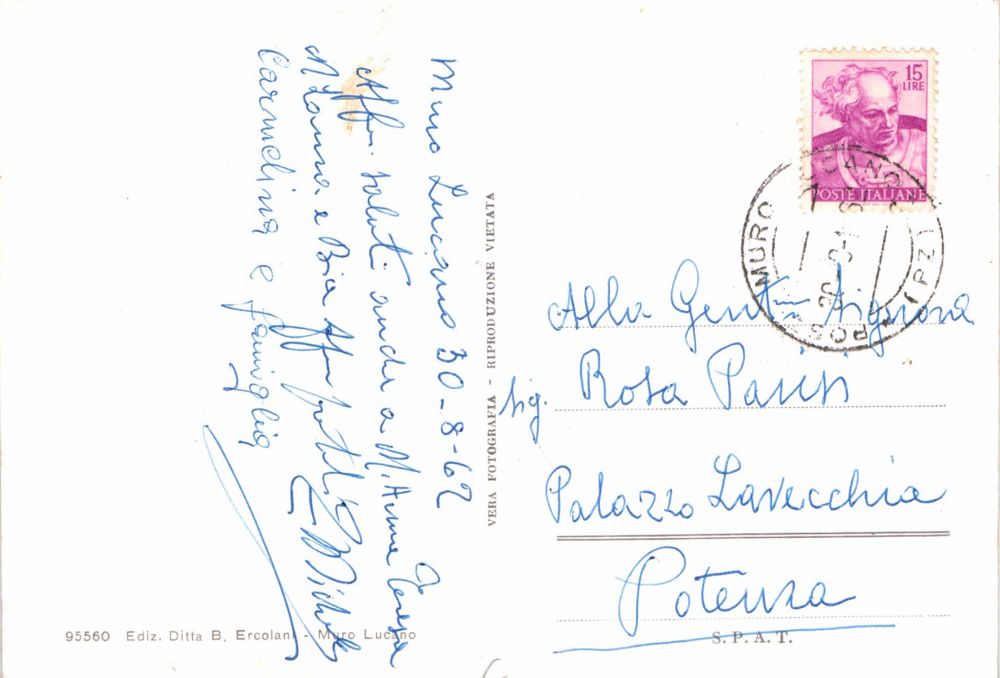 Muro Lucano 30-8-62
Aff. saluti anche a M. Anna Teresa
M Laura e Bia Aff.
Carmelina e famiglia
VERA FOTOGRAFIA - RIPRODUZIONE VIETATA
95560 Ediz. Ditta B. Ercolani - Muro Lucano
15
LIRE
POSTE ITALIANE
MURO LUCANO
POS (PZ)
Alla Gent.ma Signora
sig. Rosa Parisi
Palazzo Lavecchia
Potenza
S.P.A.T.